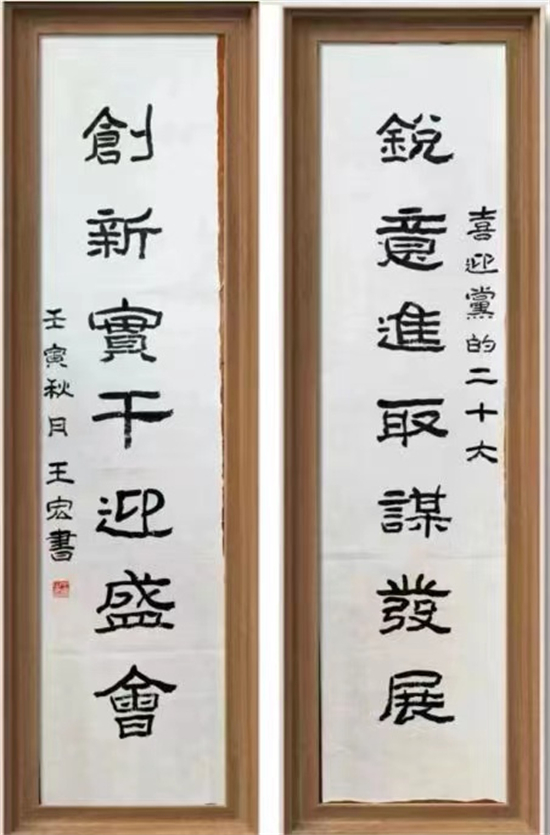 喜迎黨的二十大
銳意進取謀發展
創新實干迎盛會
壬寅秋月王宏書